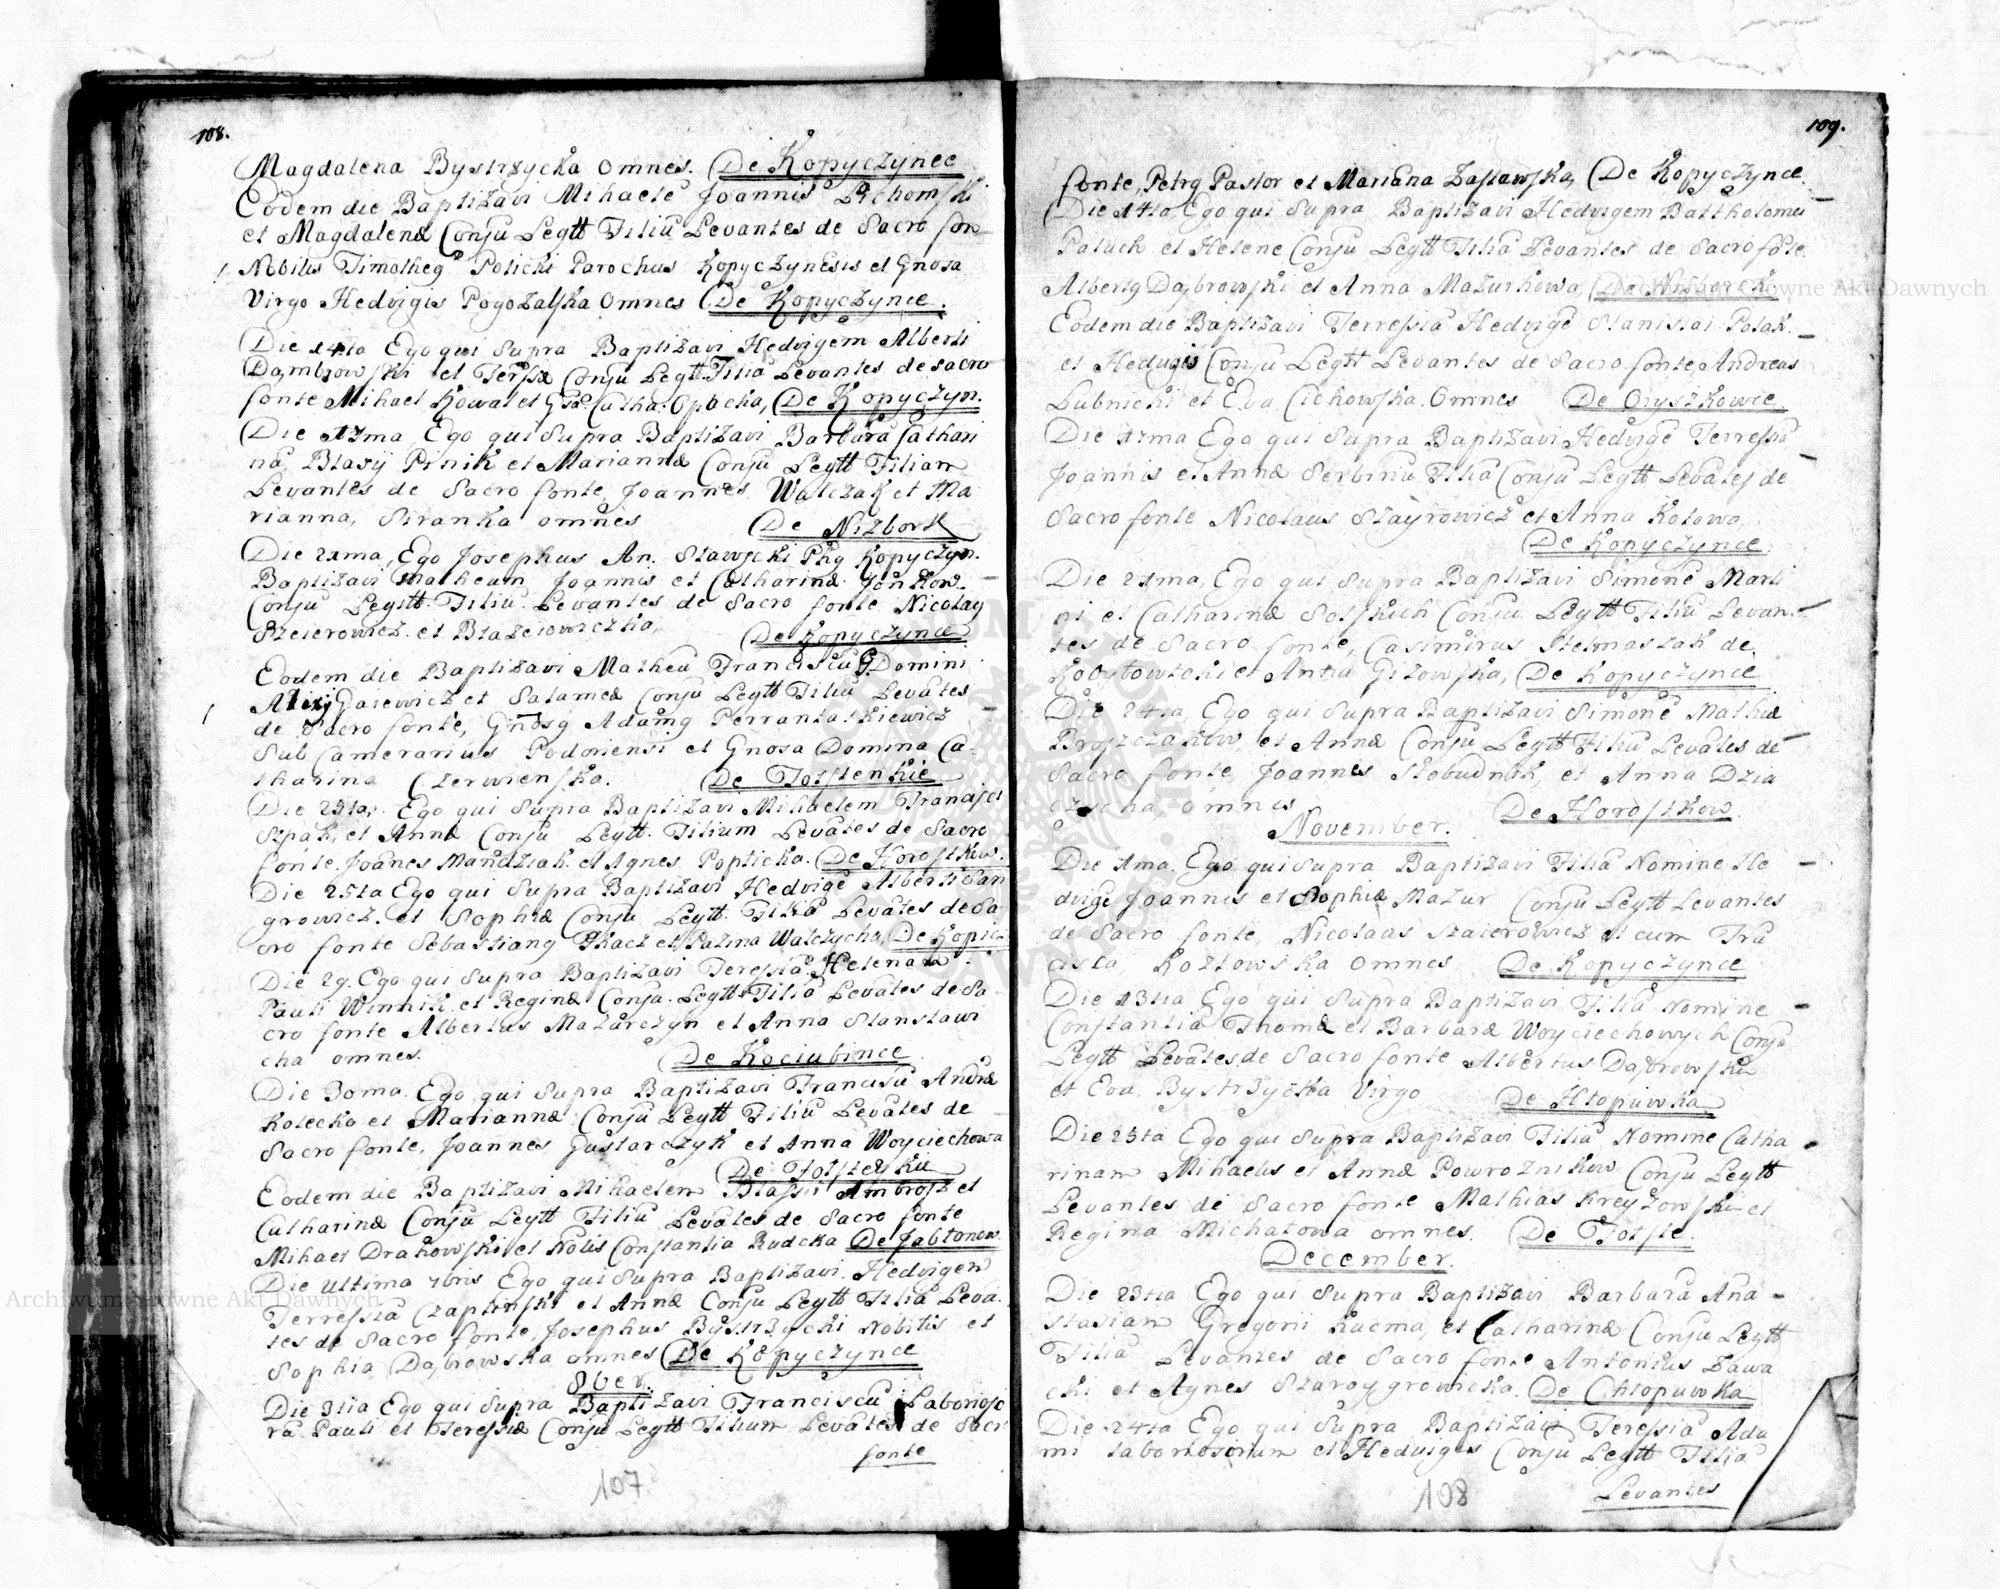 108.
Magdalena Bystrzycka omnes. De Kopyczynce
Eodem die Baptizavi Mihaele Joannis Lichomski
et Magdalenæ Conju Legtt Filiu Levantes de Sacro fon
Nobilis Timotheg Policki Parochus Kopyczynesis et Gnosa
Virgo Hedvigis Pogozalska omnes De Kopyczynce.
Die 14ta Ego qui Supra Baptizavi Hedvigem Alberti
Dambrowski et Terssæ Conju Legtt. Filia Levantes de Sacro
fonte Mihael Kowal et Catha. Opocka, De Kopyczyn.
Die 17ma Ego qui Supra Baptizavi Barbara Cathari
na Blasij Pinik et Mariannæ Conju Legtt Filiam
Levantes de Sacro fonte, Joannes Walczak et Ma
rianna, Siranka omnes De Nizbork
Die 21ma, Ego Josephus An. Stawscki Phg Kopyczyn.
Baptizavi Matheum Joannis et Catharinæ Jonkow.
Conju Legitt. Filiu Levantes de Sacro fonte Nicolay
Szeierowicz et Blazeiowiczka, De Kopyczynce
Eodem die Baptizavi Matheu Franciscu G. Domini
Alexij Gasewicz et Salameæ Conju Legtt Filiu Levates
de Sacro fonte, Gnosg Adamg Perrantaskiewicz
Sub Camerarius Podoriensi et Gnosa Domina Ca-
tharina Czerwienska. De Totstenkie
Die 25ta, Ego qui Supra Baptizavi Mihaelem Francisci
Szpak, et Annæ Conju Legtt. Filium Levates de Sacro
fonte Joanes Mandziak et Agnes Poplicka. De Horostkow.
Die 25ta Ego qui Supra Baptizavi Hedvige Alberti San
growicz. et Sophiæ Conju Legtt. Filia Levates de Sa
cro fonte Sebastiang Tkacz et Pazina Walczycha, De Kopic
Die 29. Ego qui Supra Baptizavi Teressia Helenam
Pauli Winnik et Reginæ Conju. Legtt Filia Levates de Sa
cro fonte Albertus Mazurczyn et Anna Stanslawi
cha omnes. De Kociubince
Die 30ma Ego qui Supra Baptizavi Francisu Andræ
Kolecko et Mariannæ Conju Legtt Filiu Levates de
Sacro fonte, Joannes Gustarczyk et Anna Woyciechowa
De Totsteskie
Eodem die Baptizavi Mihaelem Blassii Ambrosz et
Catharinæ Conju Legtt Filiu Levates de Sacro fonte
Mihael Drakowski et Nobis Constantia Rudcka De Jablonow.
Die ultima 7bris Ego qui Supra Baptizavi Hedvigem
Terressia Czaplinski et Annæ Conju Legtt Filia Leva.
tes de Sacro fonte Josephus Bystrzycki Nobilis et
Sophia Dabrowska omnes De Kopyczynce
8ber.
Die 3tia Ego qui Supra Baptizavi Franciscu Laborioso
ra Pauli et Teressiæ Conju Legtt Filium Levates de Sacr
fonte
107
109.
fonte, Petrg Pastor et Mariana Zaslawska, De Kopyczynce.
Die 14ta Ego qui Supra Baptizavi Hedvigem Bartholomei
Paluch et Helene Conju Legtt Filia Levantes de Sacro fote
Albertg Dabrowski et Anna Mazurkowa, De Nizborck
Eodem die Baptizavi Terressia Hedvige Stanislai Polak.
et Hedvigis Conju Legtt Levantes de Sacro fonte, Andreas
Lubnicki et Eva Cichowska. Omnes De Oryszkowce
Die 17ma Ego qui Supra Baptizavi Hedvige Terressia,
Joannis et Annæ Serbinu Filia Conju Legtt Levates de
Sacro fonte Nicolaus Szayrowicz et Anna Kotowa,
De Kopyczynce.
Die 21ma, Ego qui Supra Baptizavi Simone Marti
ni et Catharinæ Solskich Conju Legtt Filiu Levan.
tes de Sacro fonte, Casimirus Stelmaszak de
Kobylowloki et Anna Gizowska, De Kopyczynce
Die 24ta, Ego qui Supra Baptizavi Simone Mathiæ
Broszczakow, et Annæ Conju Legtt Filiu Levates de
Sacro fonte, Joannes Slobudnik, et Anna Dzia
czycha, omnes De Horostkow.
November.
Die 1ma. Ego qui Supra Baptizavi Filia Nomine He
dvige Joannis et Sophiæ Mazur Conju Legtt Levantes
de Sacro fonte, Nicolaas Szaierowicz et cum Fra
cisca, Kozlowska omnes De Kopyczynce
Die 13tia Ego qui Supra Baptizavi Filia Nomine
Constantia Thomæ et Barbaræ Woyciechowych Conju
Legtt Levates de Sacro fonte Albertus Dabrowski
et Eva, Bystrzycka Virgo De Hlopuwka
Die 25ta Ego qui Supra Baptizavi Filia Nomine Catha
rinam Mihaelis et Annæ Powroznikow Conju Legtt
Levantes de Sacro fonte Mathias Kreyzowski et
Regina Michalowa omnes. De Totste.
December.
Die 23tia Ego qui Supra Baptizavi Barbara Ana-
stasiam Gregorii Kucma, et Catharinæ Conju Legtt
Filia Levantes de Sacro fonte Antonius Zawa
cki et Agnes Szaroygrowicka. De Chlopuwka
Die 24ta Ego qui Supra Baptizavi Teressia Ada
mi laboriosorum et Hedvigis Conju Legtt Filia
Levantes
108